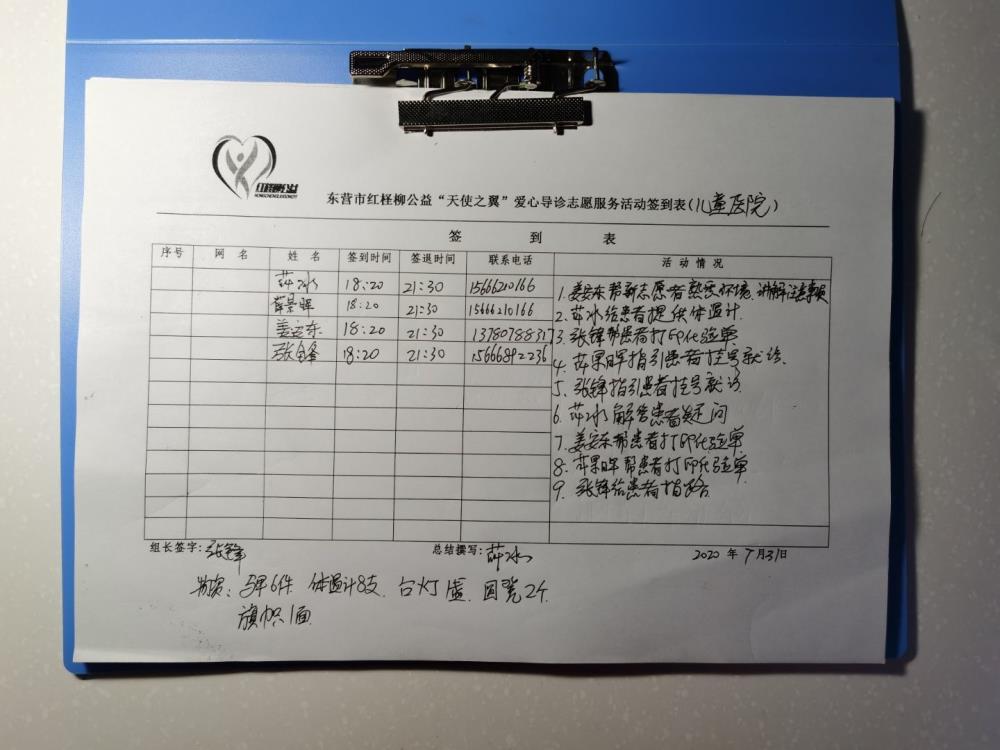 红柽柳公益
HONGCHENGLIUGONGYI
东营市红柽柳公益“天使之翼”爱心导诊志愿服务活动签到表(儿童医院)
签 到 表
序号 网 名 姓 名 签到时间 签退时间 联系电话 活 动 情 况
薛冰 18:20 21:30 15666210166
薛景晖 18:20 21:30 15666210166
姜安东 18:20 21:30 13780788317
张锋 18:20 21:30 15666892236
1. 姜安东帮新志愿者熟悉环境、讲解注意事项
2. 薛冰给患者提供体温计.
3. 张锋帮患者打印化验单
4. 薛景晖指引患者挂号就诊.
5. 张锋指引患者挂号就诊
6. 薛冰解答患者疑问
7. 姜安东帮患者打印化验单
8. 薛景晖帮患者打印化验单
9. 张锋给患者指路
组长签字: 张锋 总结撰写: 薛冰 2020 年 7月31日
物资: 马甲6件 体温计8支. 台灯1盏. 圆凳2个
旗帜1面.